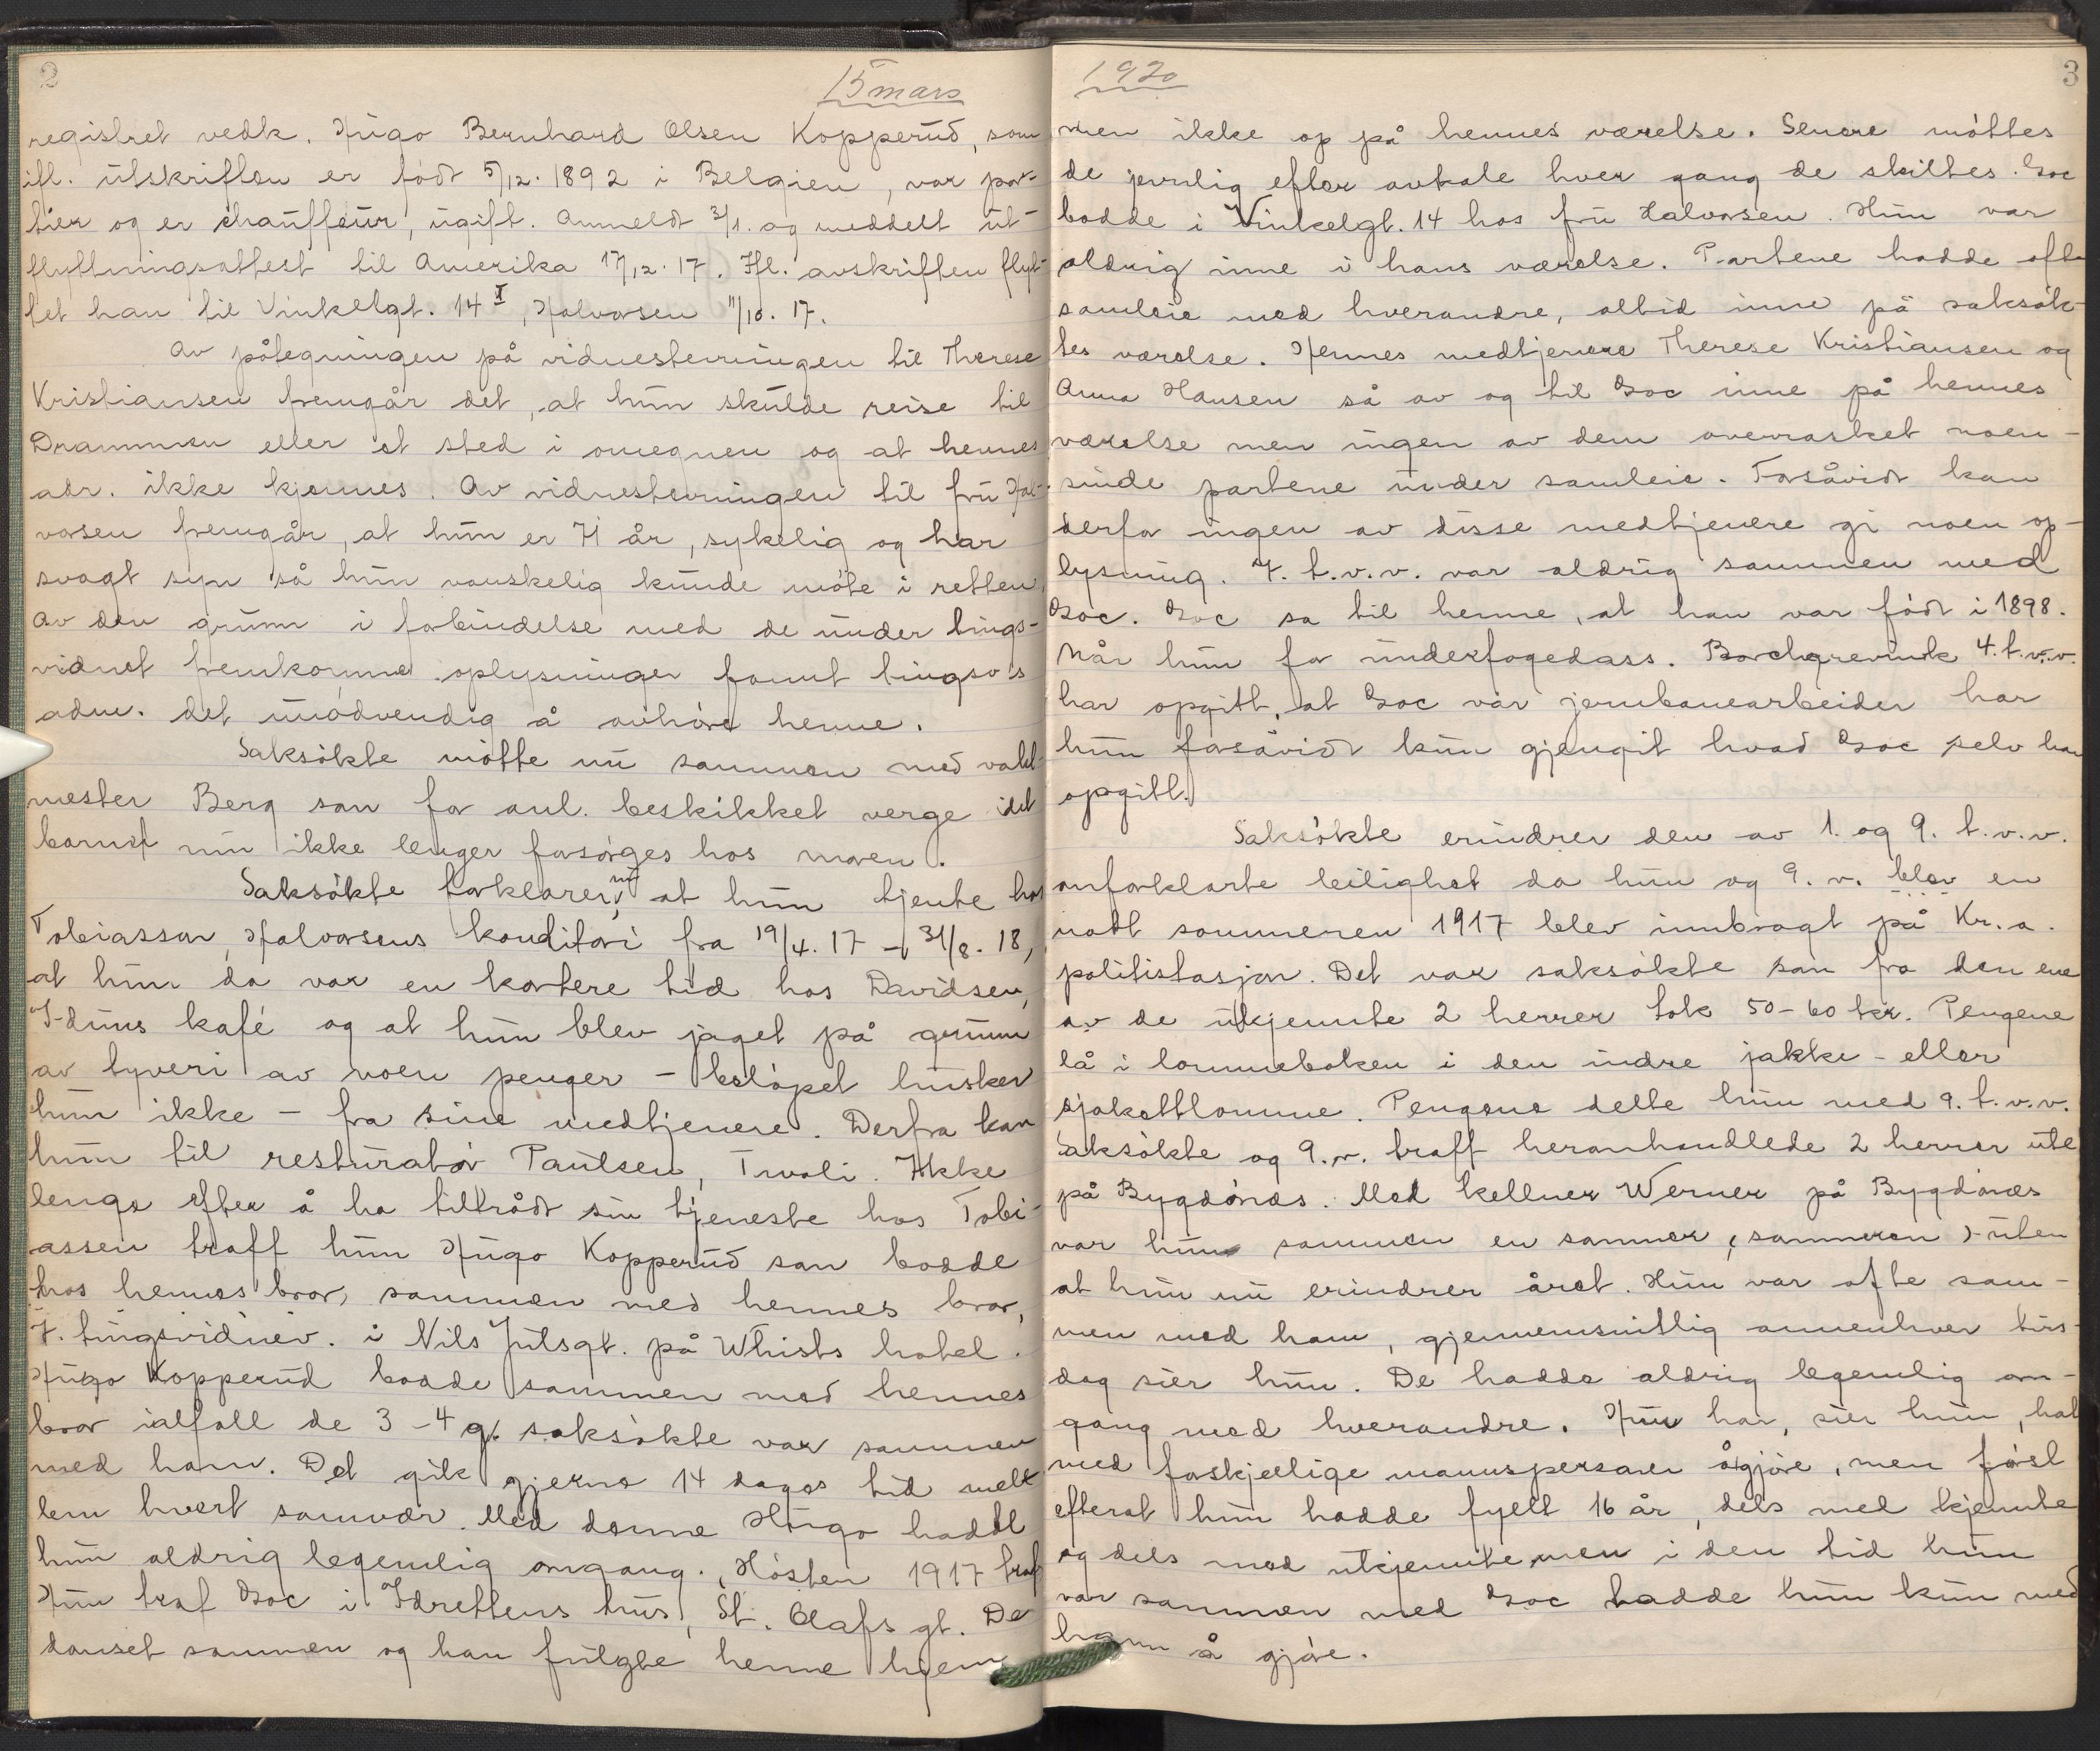 2
15 mars
registret vedk. Hugo Bernhard Olsen Kopperud, som
ifl. utskriften er född 5/12. 1892 i Belgien, var por-
tier og er chauffeur, ugift. Anmeldt 3/1. og meddelt ut-
flyttningsattest til Amerika 17/12. 17. Ifl. avskriften flyt-
tet han til Vinkelgt. 14 I, Halvorsen 11/10. 17.
Av påtegningen på vidnestevningen til Therese
Kristiansen fremgår det, at hun skulde reise til
Drammen eller et sted i omegnen og at hennes
adr. ikke kjennes. Av vidnestevningen til fru Hal-
vorsen fremgår, at hun er 71 år, sykelig og har
svagt syn så hun vanskelig kunde möte i retten.
Av den grunn i forbindelse med de under tings-
vidnet fremkomne oplysninger fannt tingsv's
adm. det unödvendig å avhöre henne.
Saksökte mötte nu sammen med vakt-
mester Berg som for anl. beskikket verge idet
barnet nu ikke lenger forsörges hos moren.
Saksökte forklarer nu, at hun tjente hos
Tobiassen, Halvorsens konditori fra 19/4. 17 - 31/8. 18,
at hun da var en kortere tid hos Davidsen,
Iduns kafé og at hun blev jaget på grunn
av tyveri av noen penger - belöpet husker
hun ikke - fra sine medtjenere. Derfra kom
hun til resturatör Paulsen, Tivoli. Ikke
lenge efter å ha tiltrådt sin tjeneste hos Tobi-
assen traff hun Hugo Kopperud som bodde
hos hennes bror, sammen med hennes bror,
7. tingsvidnev. i Nils Julsgt. på Whists hotel.
Hugo Kopperud bodde sammen med hennes
bror ialfall de 3-4 g. saksökte var sammen
med ham. Det gik gjerne 14 dages tid mel-
lem hvert samvær. Med denne Hugo hadde
hun aldrig legemlig omgang. Hösten 1917 traf
Hun traf Goc i Idrettens hus, St. Olafs gt. De
danset sammen og han fulgte henne hjem
1920
3
men ikke op på hennes værelse. Senere möttes
de jevnlig efter avtale hver gang de skiltes. Goc
bodde i Vinkelgt. 14 hos fru Halvorsen. Hun var
aldrig inne i hans værelse. Partene hadde ofte
samleie med hverandre, altid inne på saksök-
tes værelse. Hennes medtjenere Therese Kristiansen og
Anna Hansen så av og til Goc inne på hennes
værelse men ingen av dem overrasket noen-
sinde partene under samleie. Forsåvidt kan
derfor ingen av disse medtjenere gi noen op-
lysning. 7. t.v.v. var aldrig sammen med
Goc. Goc sa til henne, at han var född i 1898.
Når hun for underfogedass. Borchgrevink 4. t.v.v.
har opgitt, at Goc var jernbanearbeider har
hun forsåvidt kun gjengit hvad Goc selv har
opgitt.
Saksökte erindrer den av 1. og 9. t.v.v.
omforklarte leilighet da hun og 9. v. blev en
natt sommeren 1917 blev innbragt på Kr.a.
politistasjon. Det var saksökte som fra den ene
av de ukjennte 2 herrer tok 50-60 kr. Pengene
lå i lommeboken i den indre jakke- eller
sjakettlomme. Pengene delte hun med 9. t.v.v.
Saksökte og 9. v. traff heromhandlede 2 herrer ute
på Bygdönæs. Med kellner Werner på Bygdönæs
var hun sammen en sommer, (sommeren) uten
at hun nu erindrer året. Hun var ofte sam-
men med ham, gjennemsnittlig annenhver tirs-
dag sier hun. De hadde aldrig legemlig om-
gang med hverandre. Hun har, sier hun, hat
med forskjellige mannspersoner å gjöre, men först
efterat hun hadde fyllt 16 år, dels med kjennte
og dels med ukjennte, men i den tid hun
var sammen med Goc hadde hun kun med
ham å gjöre.